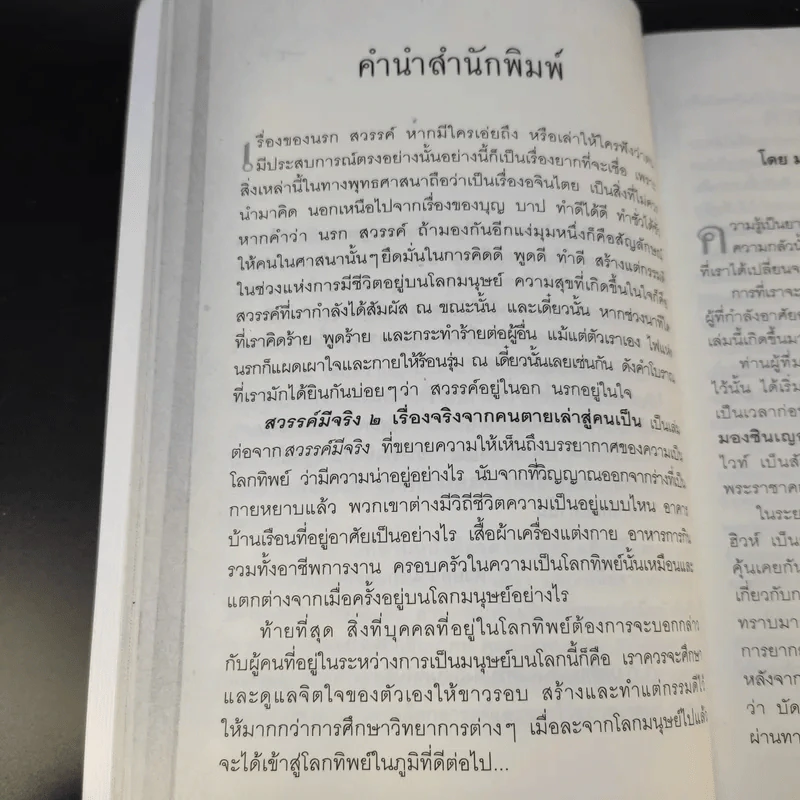 คำนำสำนักพิมพ์
เรื่องของนรก สวรรค์ หากมีใครเอ่ยถึง หรือเล่าให้ใครฟังว่า
มีประสบการณ์ตรงอย่างนั้นอย่างนี้ก็เป็นเรื่องยากที่จะเชื่อ
สิ่งเหล่านี้ในทางพุทธศาสนาถือว่าเป็นเรื่องอจินไตย เป็นสิ่งที่ไม่ควร
นำมาคิด นอกเหนือไปจากเรื่องของบุญ บาป ทำดีได้ดี ทำชั่วได้ชั่ว
หากคำว่า นรก สวรรค์ ถ้ามองกันอีกแง่มุมหนึ่งก็คือสัญลักษณ์
ให้คนในศาสนานั้นๆยึดมั่นในการคิดดี พูดดี ทำดี สร้างแต่กรรมดี
ในช่วงแห่งการมีชีวิตอยู่บนโลกมนุษย์ ความสุขที่เกิดขึ้นในใจก็คือ
สวรรค์ที่เรากำลังได้สัมผัส ณ ขณะนั้น และเดี๋ยวนั้น หากช่วงนาทีใด
ที่เราคิดร้าย พูดร้าย และกระทำร้ายต่อผู้อื่น แม้แต่ตัวเราเอง ไฟแห่ง
นรกก็แผดเผาใจและกายให้ร้อนรุ่ม ณ เดี๋ยวนั้นเลยเช่นกัน ดังคำโบราณ
ที่เรามักได้ยินกันบ่อยๆว่า สวรรค์อยู่ในอก นรกอยู่ในใจ
สวรรค์มีจริง ๒ เรื่องจริงจากคนตายเล่าสู่คนเป็น เป็นเล่ม
ต่อจากสวรรค์มีจริง ที่ขยายความให้เห็นถึงบรรยากาศของความเป็น
โลกทิพย์ ว่ามีความน่าอยู่อย่างไร นับจากที่วิญญาณออกจากร่างที่เป็น
กายหยาบแล้ว พวกเขาต่างมีวิถีชีวิตความเป็นอยู่แบบไหน อาคาร
บ้านเรือนที่อยู่อาศัยเป็นอย่างไร เสื้อผ้าเครื่องแต่งกาย อาหารการกิน
รวมทั้งอาชีพการงาน ครอบครัวในความเป็นโลกทิพย์นั้นเหมือนและ
แตกต่างจากเมื่อครั้งอยู่บนโลกมนุษย์อย่างไร
ท้ายที่สุด สิ่งที่บุคคลที่อยู่ในโลกทิพย์ต้องการจะบอกกล่าว
กับผู้คนที่อยู่ในระหว่างการเป็นมนุษย์บนโลกนี้ก็คือ เราควรจะศึกษา
และดูแลจิตใจของตัวเองให้ขาวรอบ สร้างและทำแต่กรรมดีไว้
ให้มากกว่าการศึกษาวิทยาการต่างๆ เมื่อละจากโลกมนุษย์ไปแล้ว
จะได้เข้าสู่โลกทิพย์ในภูมิที่ดีต่อไป...
โดย
ความรู้เป็น
ความกลัว
ที่เราได้เปลี่ยน
การที่เราจะ
ผู้ที่กำลังอาศัย
เล่มนี้เกิดขึ้น
ท่านผู้ที่
ไว้นั้น ได้เริ่ม
เป็นเวลาก่อน
มองซินเญอ
ไวท์ เป็น
พระราชาค
ในระย
ฮิวห์ เป็น
คุ้นเคยกัน
เกี่ยวกับ
ทราบมา
การยาก
หลังจาก
ว่า บัด
ผ่านทา